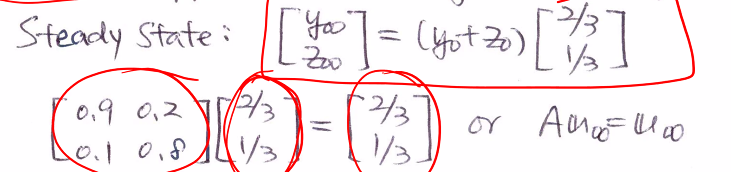 Steady State: [y∞ z∞] = (y0+z0) [2/3 1/3]
[0.9 0.2 0.1 0.8] [2/3 1/3] = [2/3 1/3] or Au∞=u∞